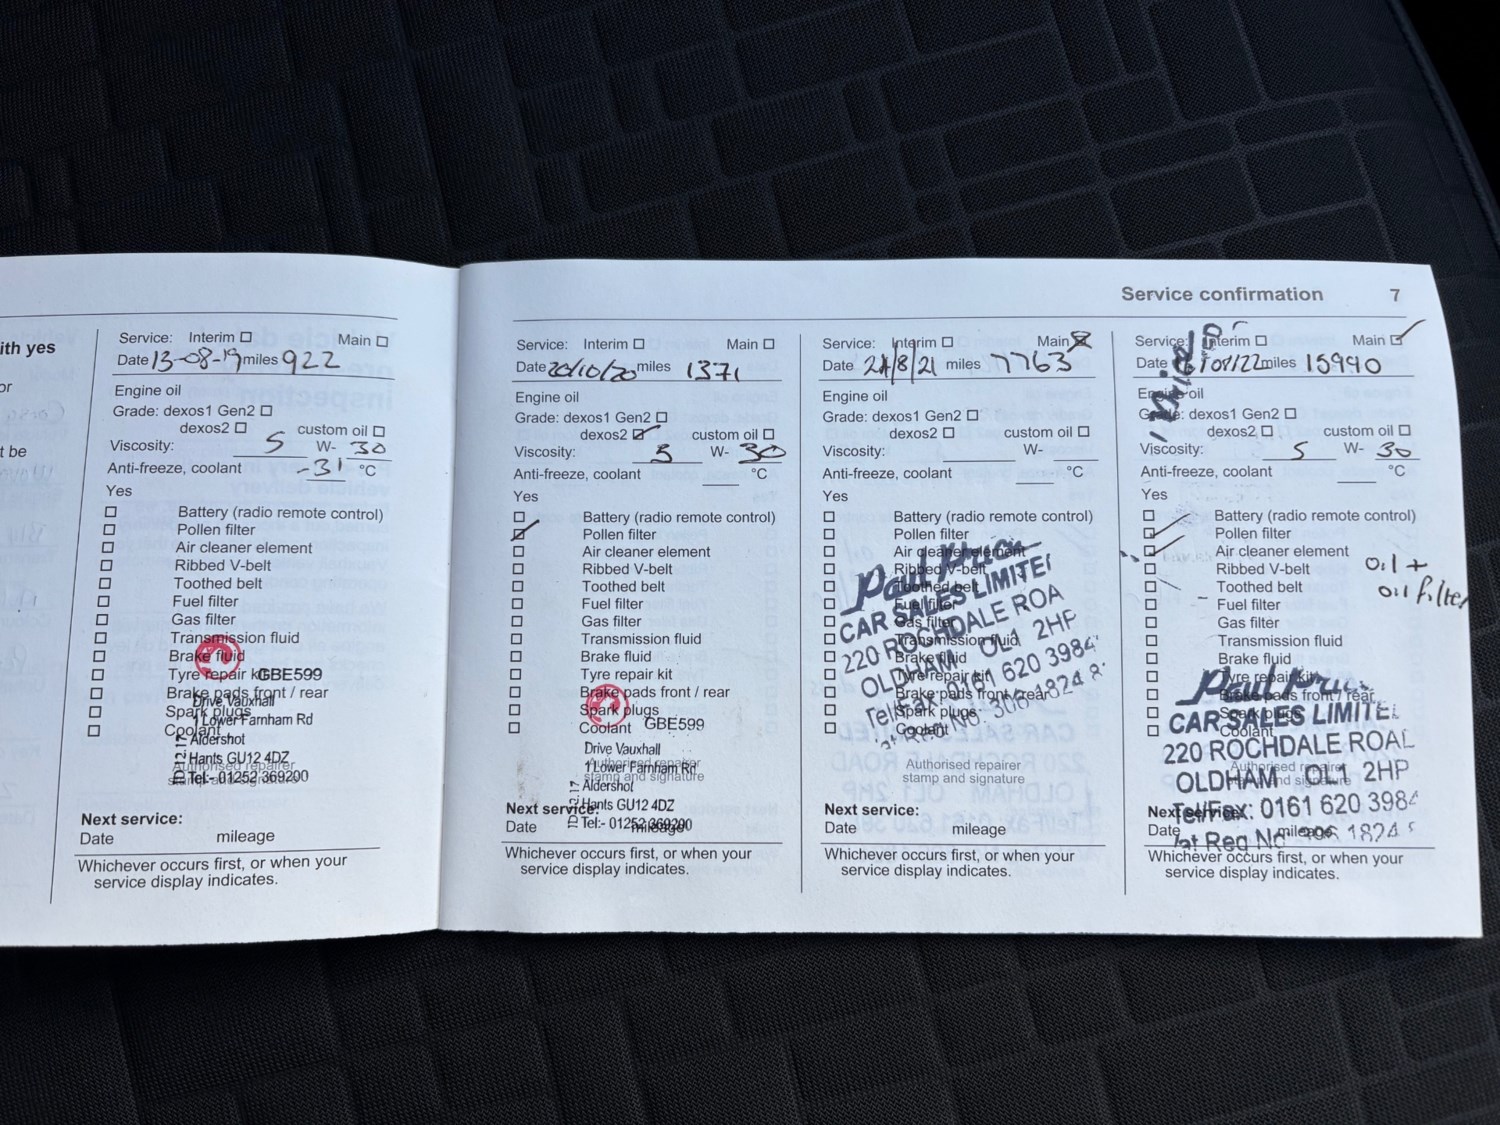 ith yes
or
t be
Service: Interim Main
Date 13-08-19 miles 922
Engine oil
Grade: dexos1 Gen2
dexos2 custom oil
Viscosity: 5 W- 30
Anti-freeze, coolant -31 °C
Yes
Battery (radio remote control)
Pollen filter
Air cleaner element
Ribbed V-belt
Toothed belt
Fuel filter
Gas filter
Transmission fluid
Brake fluid
Tyre repair kit
GBE599
Brake pads front / rear
Drive Vauxhall
Spark plugs
1 Lower Farnham Rd
Coolant
Aldershot
Hants GU12 4DZ
Authorised repairer
stamp and signature
Tel:- 01252 369200
Next service:
Date mileage
Whichever occurs first, or when your
service display indicates.
Service confirmation 7
Service: Interim Main
Date 20/10/20 miles 1371
Engine oil
Grade: dexos1 Gen2
dexos2 custom oil
Viscosity: 5 W- 30
Anti-freeze, coolant °C
Yes
Battery (radio remote control)
Pollen filter
Air cleaner element
Ribbed V-belt
Toothed belt
Fuel filter
Gas filter
Transmission fluid
Brake fluid
Tyre repair kit
Brake pads front / rear
Spark plugs
Coolant
GBE599
Drive Vauxhall
1 Lower Farnham Rd
Authorised repairer
stamp and signature
Aldershot
Hants GU12 4DZ
Tel:- 01252 369200
Next service:
Date mileage
Whichever occurs first, or when your
service display indicates.
Service: Interim Main
Date 24/8/21 miles 7763
Engine oil
Grade: dexos1 Gen2
dexos2 custom oil
Viscosity: W-
Anti-freeze, coolant °C
Yes
Battery (radio remote control)
Pollen filter
Air cleaner element
Ribbed V-belt
Toothed belt
Fuel filter
Gas filter
Transmission fluid
Brake fluid
Tyre repair kit
Brake pads front / rear
Spark plugs
Coolant
CAR SALES LIMITE
220 ROCHDALE ROA
OLDHAM OL1 2HP
Tel/Fax: 0161 620 3984
Authorised repairer
stamp and signature
Next service:
Date mileage
Whichever occurs first, or when your
service display indicates.
Service: Interim Main
Date miles 15990
Engine oil
Grade: dexos1 Gen2
dexos2 custom oil
Viscosity: 5 W- 30
Anti-freeze, coolant °C
Yes
Battery (radio remote control)
Pollen filter
Air cleaner element
Ribbed V-belt
Toothed belt
Fuel filter
Gas filter
Transmission fluid
Brake fluid
Tyre repair kit
Brake pads front / rear
Spark plugs
Coolant
oil +
oil filter
CAR SALES LIMITE
220 ROCHDALE ROA
OLDHAM OL1 2HP
Tel/Fax: 0161 620 3984
Authorised repairer
stamp and signature
Next service:
Date mileage
Whichever occurs first, or when your
service display indicates.